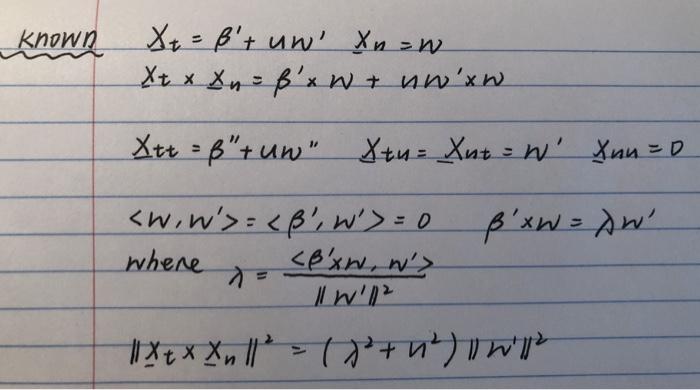 known X_t = β' + uw' X_u = w
X_t × X_u = β' × w + uw' × w
X_tt = β" + uw" X_tu = X_ut = w' X_uu = 0
<w, w'> = <β', w'> = 0 β' × w = λw'
where λ = <β'×w, w'> / ||w'||²
||X_t × X_u||² = (λ² + u²) ||w'||²